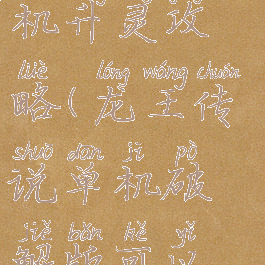 机升灵攻
lüè lóng wáng chuán
略(龙王传
shuō dān jī pò
说单机破
jiě bǎn kě yǐ
解版可以